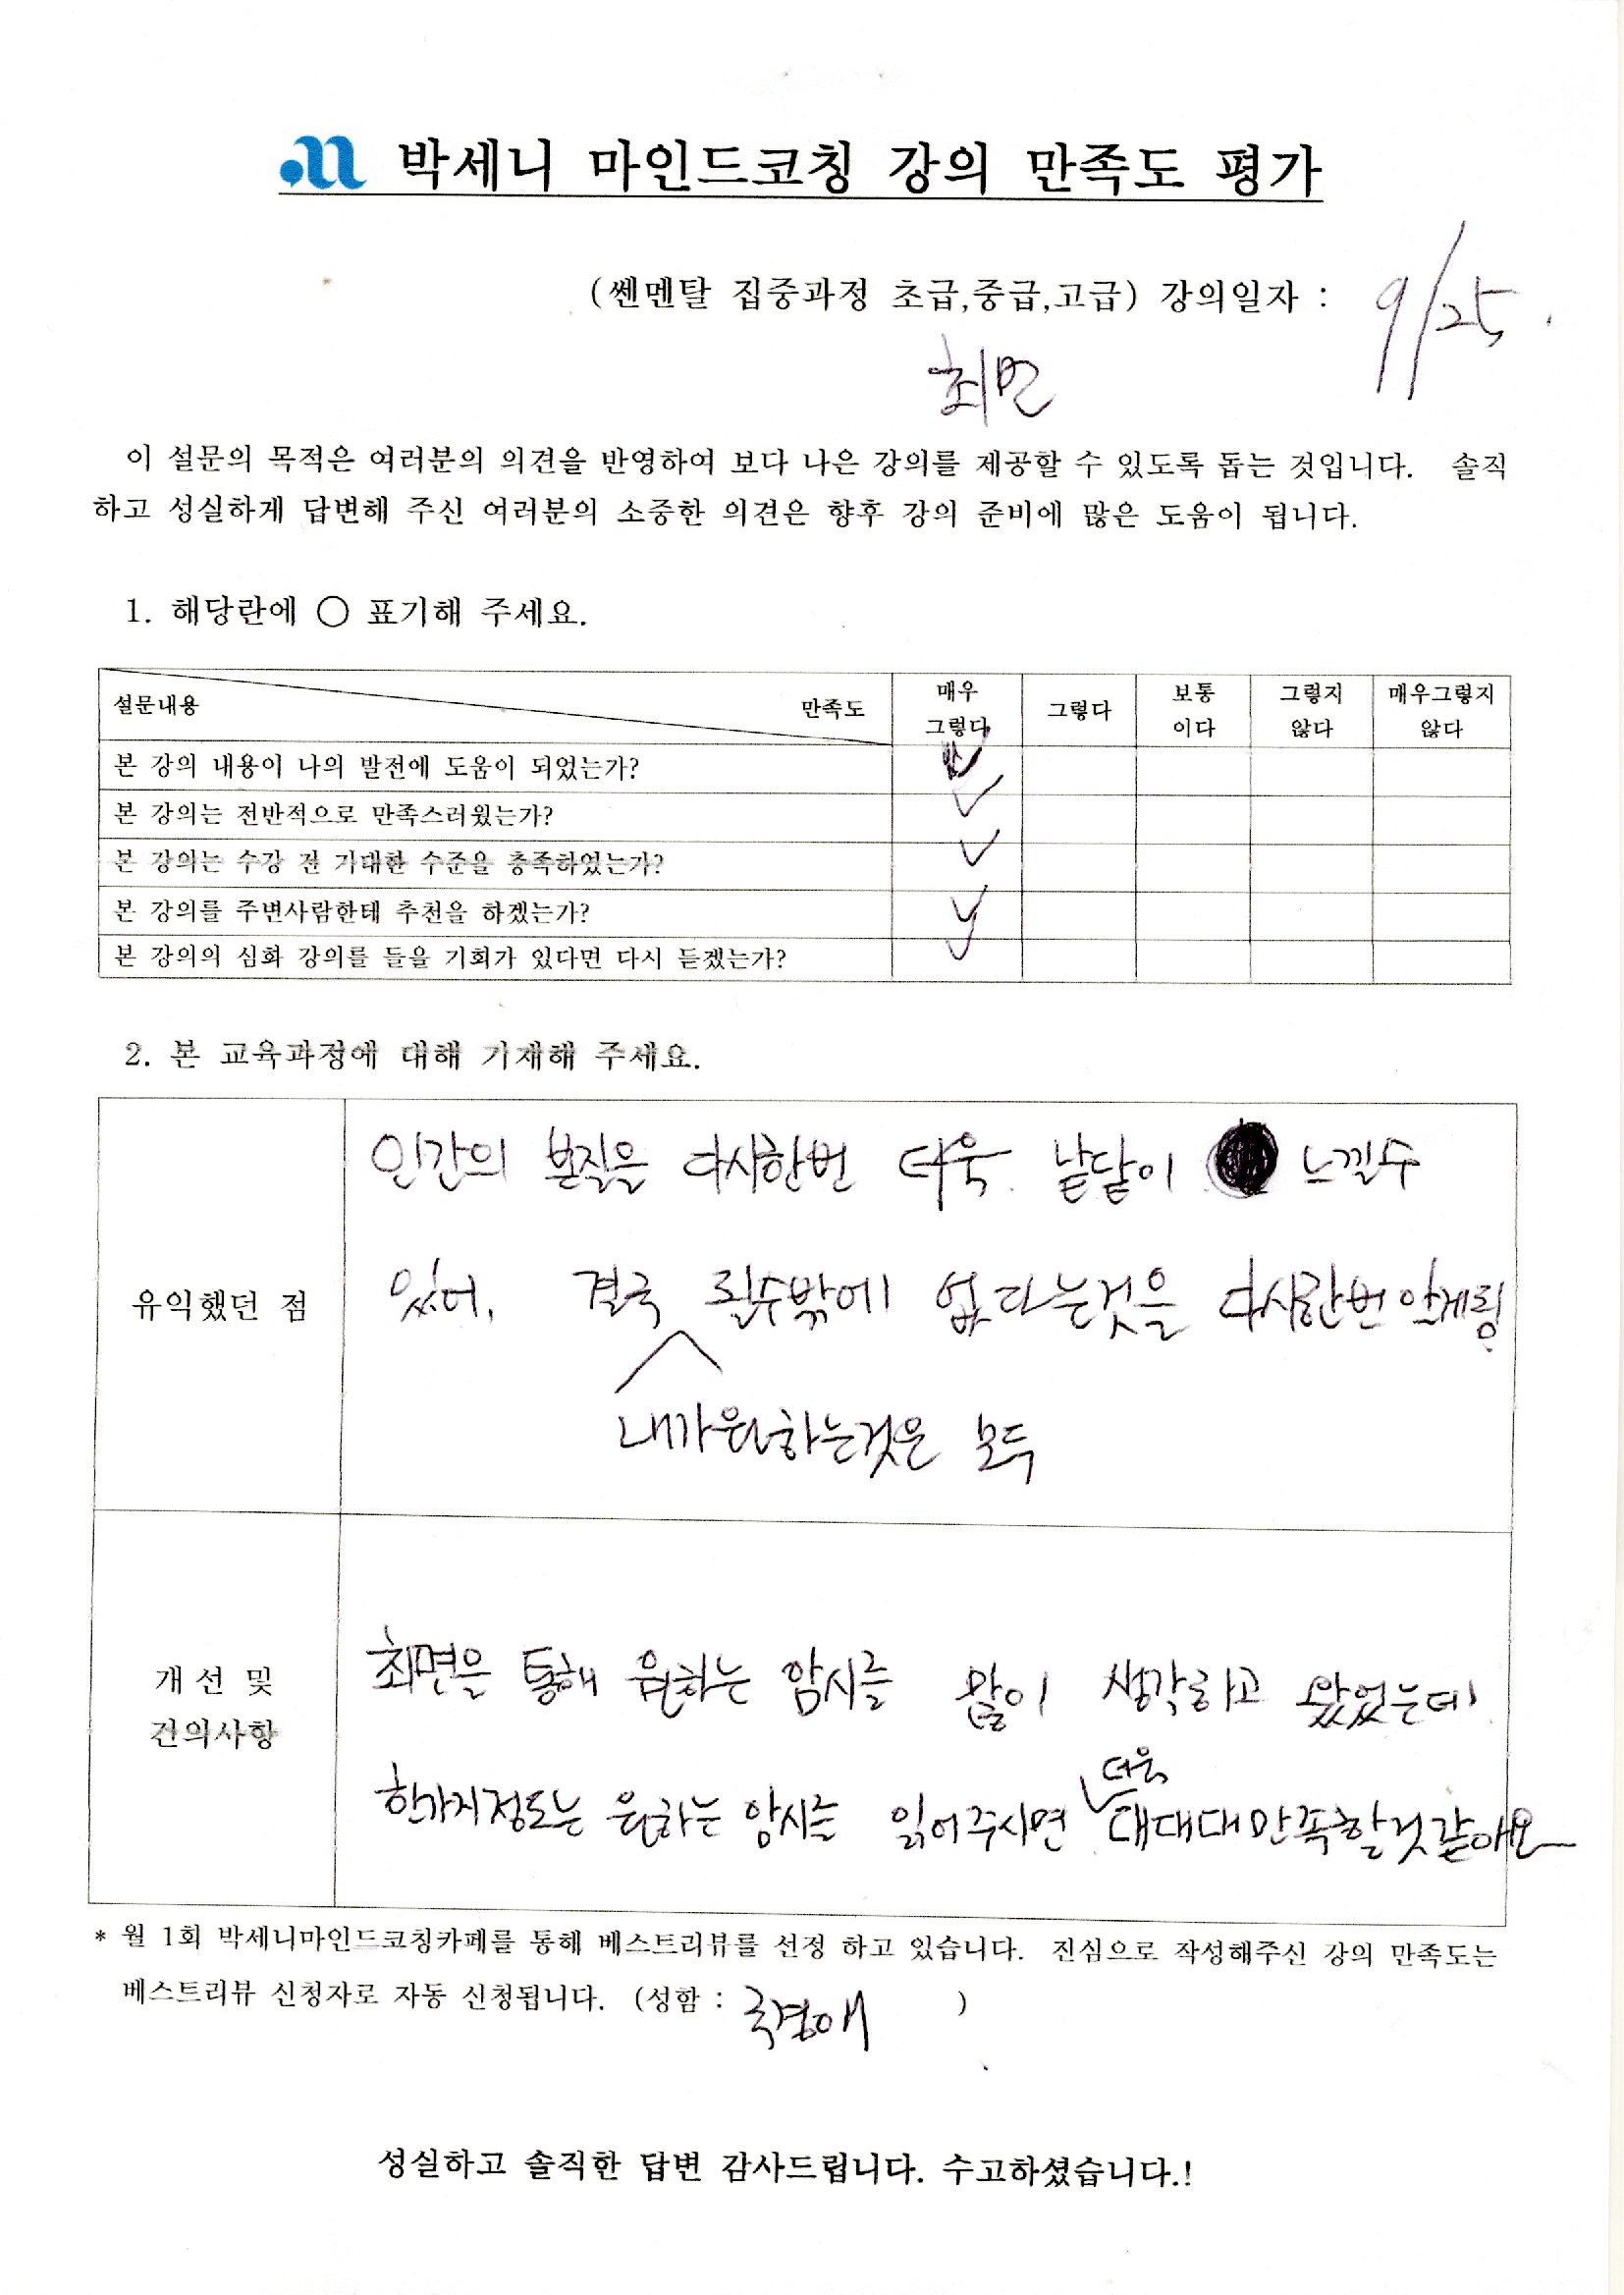 박세니 마인드코칭 강의 만족도 평가
(쎈멘탈 집중과정 초급,중급,고급) 강의일자 : 9/25.
최면
이 설문의 목적은 여러분의 의견을 반영하여 보다 나은 강의를 제공할 수 있도록 돕는 것입니다. 솔직
하고 성실하게 답변해 주신 여러분의 소중한 의견은 향후 강의 준비에 많은 도움이 됩니다.
1. 해당란에 ○ 표기해 주세요.
설문내용 만족도 매우 그렇다 그렇다 보통 이다 그렇지 않다 매우그렇지 않다
본 강의 내용이 나의 발전에 도움이 되었는가? ✓
본 강의는 전반적으로 만족스러웠는가? ✓
본 강의는 수강 전 기대한 수준을 충족하였는가? ✓
본 강의를 주변사람한테 추천을 하겠는가? ✓
본 강의의 심화 강의를 들을 기회가 있다면 다시 듣겠는가? ✓
2. 본 교육과정에 대해 기재해 주세요.
유익했던 점
인간의 본질을 다시한번 더욱 낱닽이 느낄수
있어, 결국 될수밖에 없다는것을 다시한번 알게됨.
내가원하는것은 모두
개선 및
건의사항
최면을 통해 원하는 암시를 많이 생각하고 왔었는데
한가지정도는 원하는 암시를 읽어주시면 대대대만족할것같아요
더욱
* 월 1회 박세니마인드코칭카페를 통해 베스트리뷰를 선정 하고 있습니다. 진심으로 작성해주신 강의 만족도는
베스트리뷰 신청자로 자동 신청됩니다. (성함 : 국경애 )
성실하고 솔직한 답변 감사드립니다. 수고하셨습니다.!